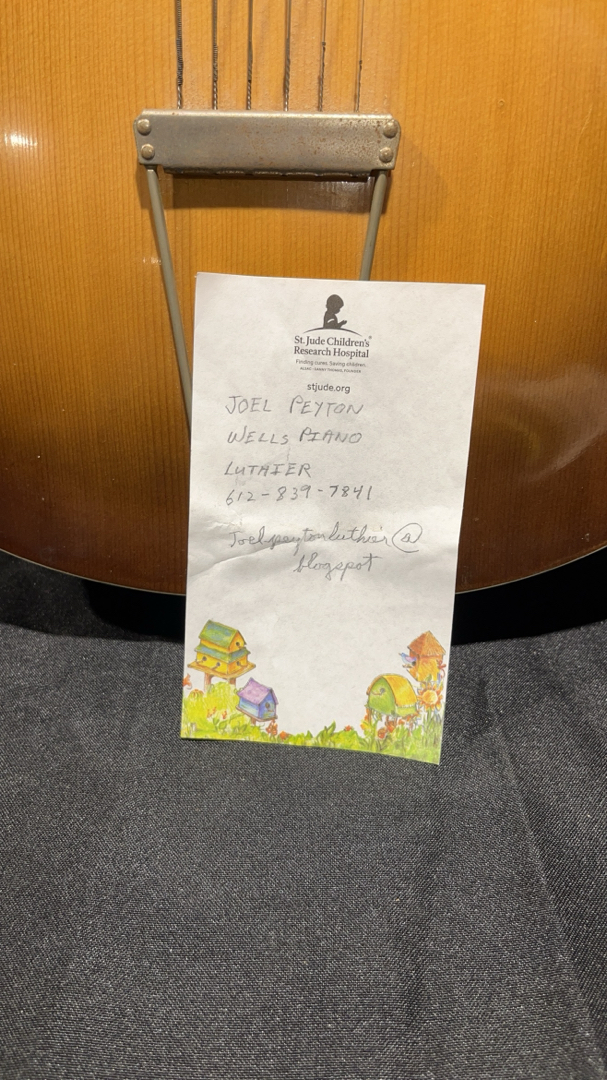 St. Jude Children's®
Research Hospital
Finding cures. Saving children.
ALSAC • DANNY THOMAS, FOUNDER
stjude.org
JOEL PEYTON
WELLS PIANO
LUTHIER
612-839-7841
Joelpeytonluthier@
blogspot